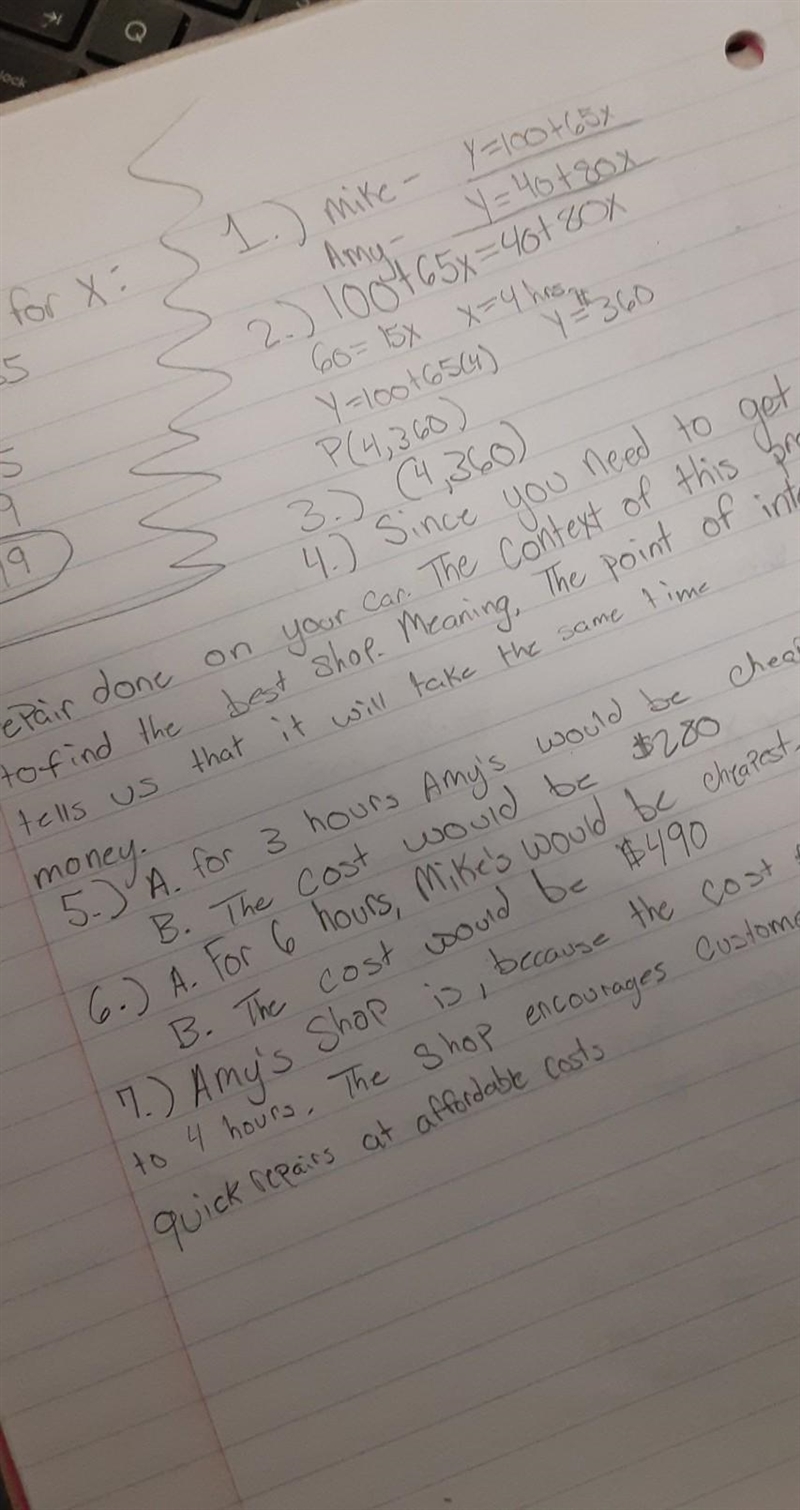 Q
lock
for x:
5
5
9
19
1.) Mike- y=100+65x
Amy- y=40+80x
2.) 100+65x=40+80x
60=15x x=4 hrs y=$360
y=100+65(4)
P(4,360)
3.) (4,360)
4.) Since you need to get
epair done on your car. The context of this pro
to find the best shop. Meaning, The point of inte
tells us that it will take the same time
money.
5.) A. for 3 hours Amy's would be cheap
B. The cost would be $280
6.) A. For 6 hours, Mike's would be cheapest.
B. The cost would be $490
7.) Amy's Shop is, because the cost
to 4 hours. The shop encourages custome
quick repairs at affordable costs